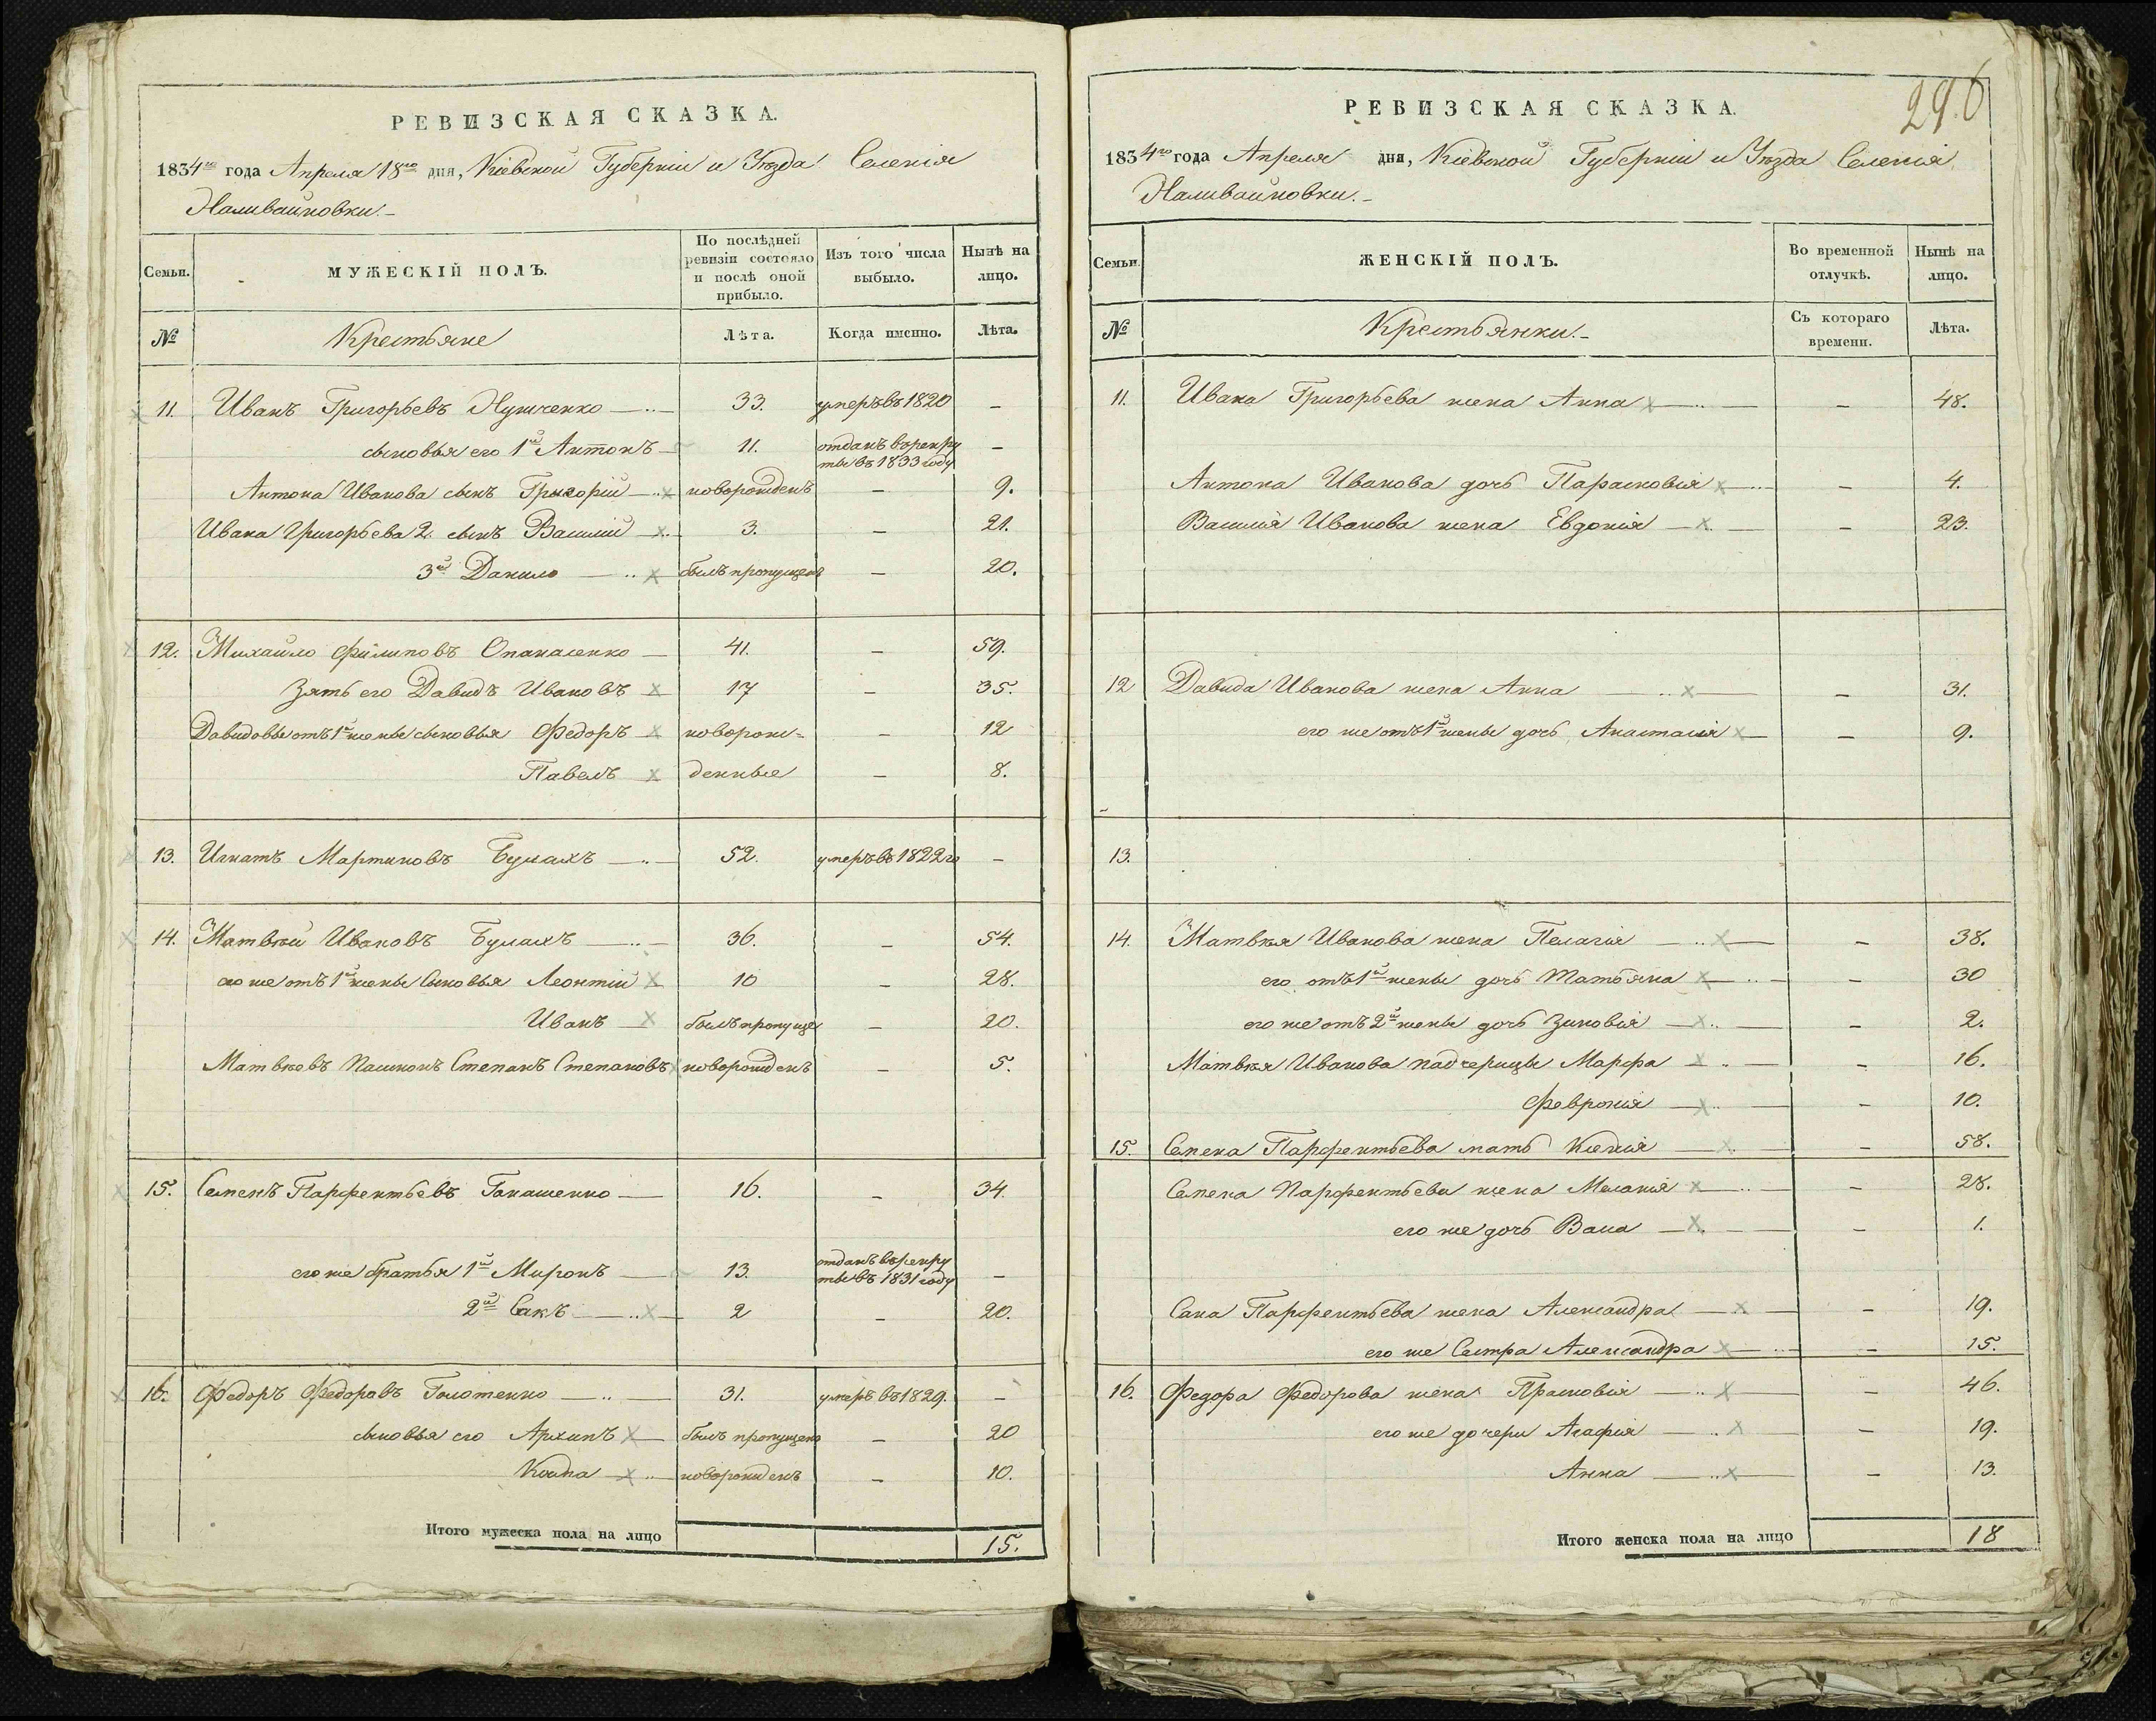 РЕВИЗСКАЯ СКАЗКА.
1834го года Апреля 18го дня, Кіевской Губерніи и Уѣзда Селенія
Наливайковки.
Семьи.
МУЖЕСКІЙ ПОЛЪ.
По послѣдней
ревизіи состояло
и послѣ оной
прибыло.
Изъ того числа
выбыло.
Нынѣ на
лицо.
№
Крестьяне
Лѣта.
Когда именно.
Лѣта.
11. Иванъ Григорьевъ 33. умеръ въ 1820 —
сыновья его 1й Антонъ 11. отданъ в рекру
ты въ 1833 году —
Антона Иванова сынъ Григорій новорожденъ — 9.
Ивана Григорьева 2. сынъ Василій 3. — 21.
3й Данило былъ пропущенъ — 20.
12. Михайло Филиповъ Опанасенко 41. — 59.
Зять его Давидъ Ивановъ 17 — 35.
Давидовы отъ 1й жены сыновья Федоръ новорож= — 12
Павелъ денные — 8.
13. Игнатъ Мартиновъ Булахъ 52. умеръ въ 1822 го —
14. Матвѣй Ивановъ Булахъ 36. — 54.
его же отъ 1й жены сыновья Леонтій 10 — 28.
Иванъ былъ пропуще — 20.
Матвѣевъ Пасынокъ Степанъ Степановъ новорожденъ — 5.
15. Семенъ Парфентьевъ 16. — 34.
его же братья 1й Миронъ 13. отданъ въ рекру
ты въ 1831 году —
2й Сакъ 2 — 20.
16. Федоръ Федоровъ 31. умеръ въ 1829. —
сыновья его Архипъ былъ пропущенъ — 20
Козма новорожденъ — 10.
Итого мужеска пола на лицо 15.
296
РЕВИЗСКАЯ СКАЗКА.
1834го года Апреля дня, Кіевской Губерніи и Уѣзда Селенія
Наливайковки.
Семьи.
ЖЕНСКІЙ ПОЛЪ.
Во временной
отлучкѣ.
Нынѣ на
лицо.
№
Крестьянки.
Съ котораго
времени.
Лѣта.
11. Ивана Григорьева жена Анна — 48.
Антона Иванова дочь Парасковія — 4.
Василія Иванова жена Евдокія — 23.
12 Давида Иванова жена Анна — 31.
его же отъ 1й жены дочь Анастасія — 9.
13.
14. Матвѣя Иванова жена Пелагія — 38.
его отъ 1й жены дочь Татьяна — 30
его же отъ 2й жены дочь Зиновія — 2.
Матвѣя Иванова падчерицы Марфа — 16.
Февронія — 10.
15. Семена Парфентьева мать Ксенія — 58.
Семена Парфентьева жена Меланія — 28.
его же дочь Васса — 1.
Сака Парфентьева жена Александра — 19.
его же Сестра Александра — 15.
16. Федора Федорова жена Прасковія — 46.
его же дочери Агафія — 19.
Анна — 13.
Итого женска пола на лицо 18